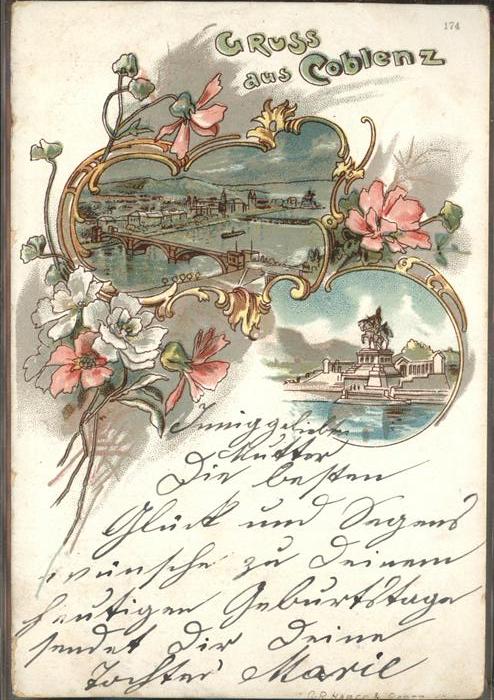 174
Gruss
aus Coblenz
Inniggeliebte
Mutter
Die besten
Glück und Segens
wünsche zu Deinem
heutigen Geburtstage
sendet Dir Deine
Tochter Marie